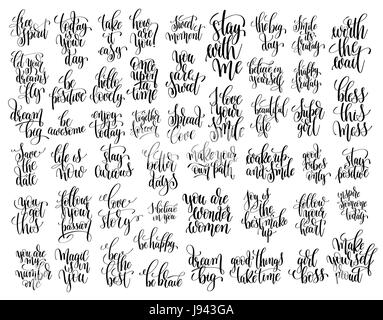 free
spirit
today
is your
day
take
it
easy
how
are
you!
sweet
moment
stay
with
me
the big
day
smile
it's
friday
worth
the
wait
let your
dreams
fly
be
positive
hello
lovely
once
upon a
time
you
are so
sweet
believe in
yourself
happy
friday
bless
this
mess
dream
big
be
awesome
enjoy
today
together
forever
spread
love
I love
your
smile
beautiful
life
super
girl
save
the
date
life is
now
stay
curious
better
days
make your
own path
wake up
and smile
good
vibes
only
stay
positive
you
got
this
follow
your
passion
love
story
I believe
in you
you are
wonder
women
joy is
the best
make up
follow
your
heart
inspire
someone
today
you are
my
number
one
magic
is in
you
be
the
best
be happy
be brave
dream
big
good things
take time
girl
boss
make
yourself
proud
alamy
alamy
Image ID: J943GA
www.alamy.com